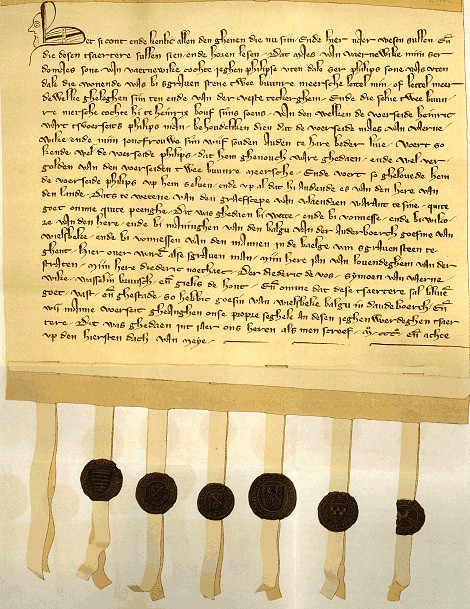 Het si cont ende kenlic allen den ghenen die nu siin . Ende hier naer wesen sullen . Eñ
die desen tsaertere sullen sien . ende horen lesen . Dat Mjles van vaernewike mijn ser
domaes sone van vaernewike cochte jeghen philipse vten dale ser philips sone was vten
dale die wonende was bi sgrauen stene twee buunre meersche lettel min . of lettel meer
de welke gheleghen siin ten ende van der veste teckerghem . Ende die selue twee buun
re mersche cochte hi te heinrix bouf siins soens . van den welken de voerseide heinric
wart tsvoerseits philips man . behoudelike dien dat de voerseide mjles van vaerne
wike ende min joncfrouwe siin wijf souden auden te hare beder liue . Voert so
kende wel de voerseide philips . dat hem ghenouch ware ghedaen . ende wel ver
golden van den voerseiden twee buunre meersche . Ende voert so ghelouede hem
de voerseide philips vp hem seluen . ende vp al dat hi audende es van den here van
den lande . Dats te wetene van den graefscepe van vlaendren warant te sine . quite
goet omme sine penghe . Dit was ghedaen bi wette . ende bi vonnesse . ende bi wiko
re van den here . ende bi maninghen van den balgu van der auderboerch goesine van
wielsbeke . ende bi vonnessen van den mannen in de baelge van sgrauensteen te
ghent . hier ouer was alse sgrauen man . mijn here jan van louendeghem van der
straten . mijn here diederic noethaec . Der diederic de vos . symoen van vaerne
wike . wasselin beuusch . eñ gielis de hont . Eñ omme dat dese tsaertere sal bliuē
goet . vast . eñ ghestade . so hebbic goesin van wielsbeke balgu in dauderboerch . Eñ
wij manne voerseit ghehanghen onse propre seghele an desen jeghenwoerdeghen tsaer
tere . Dit was ghedaen int jaer ons heren alsmen screef . M . CCC . eñ achte
vp den hiersten dach van meye .